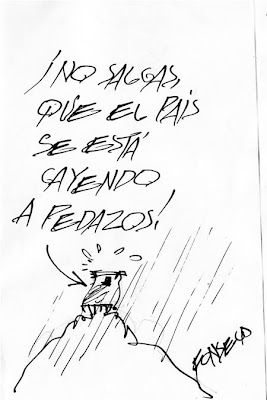 ¡NO SALGAS,
QUE EL PAIS
SE ESTÁ
CAYENDO
A PEDAZOS!
FONSECA